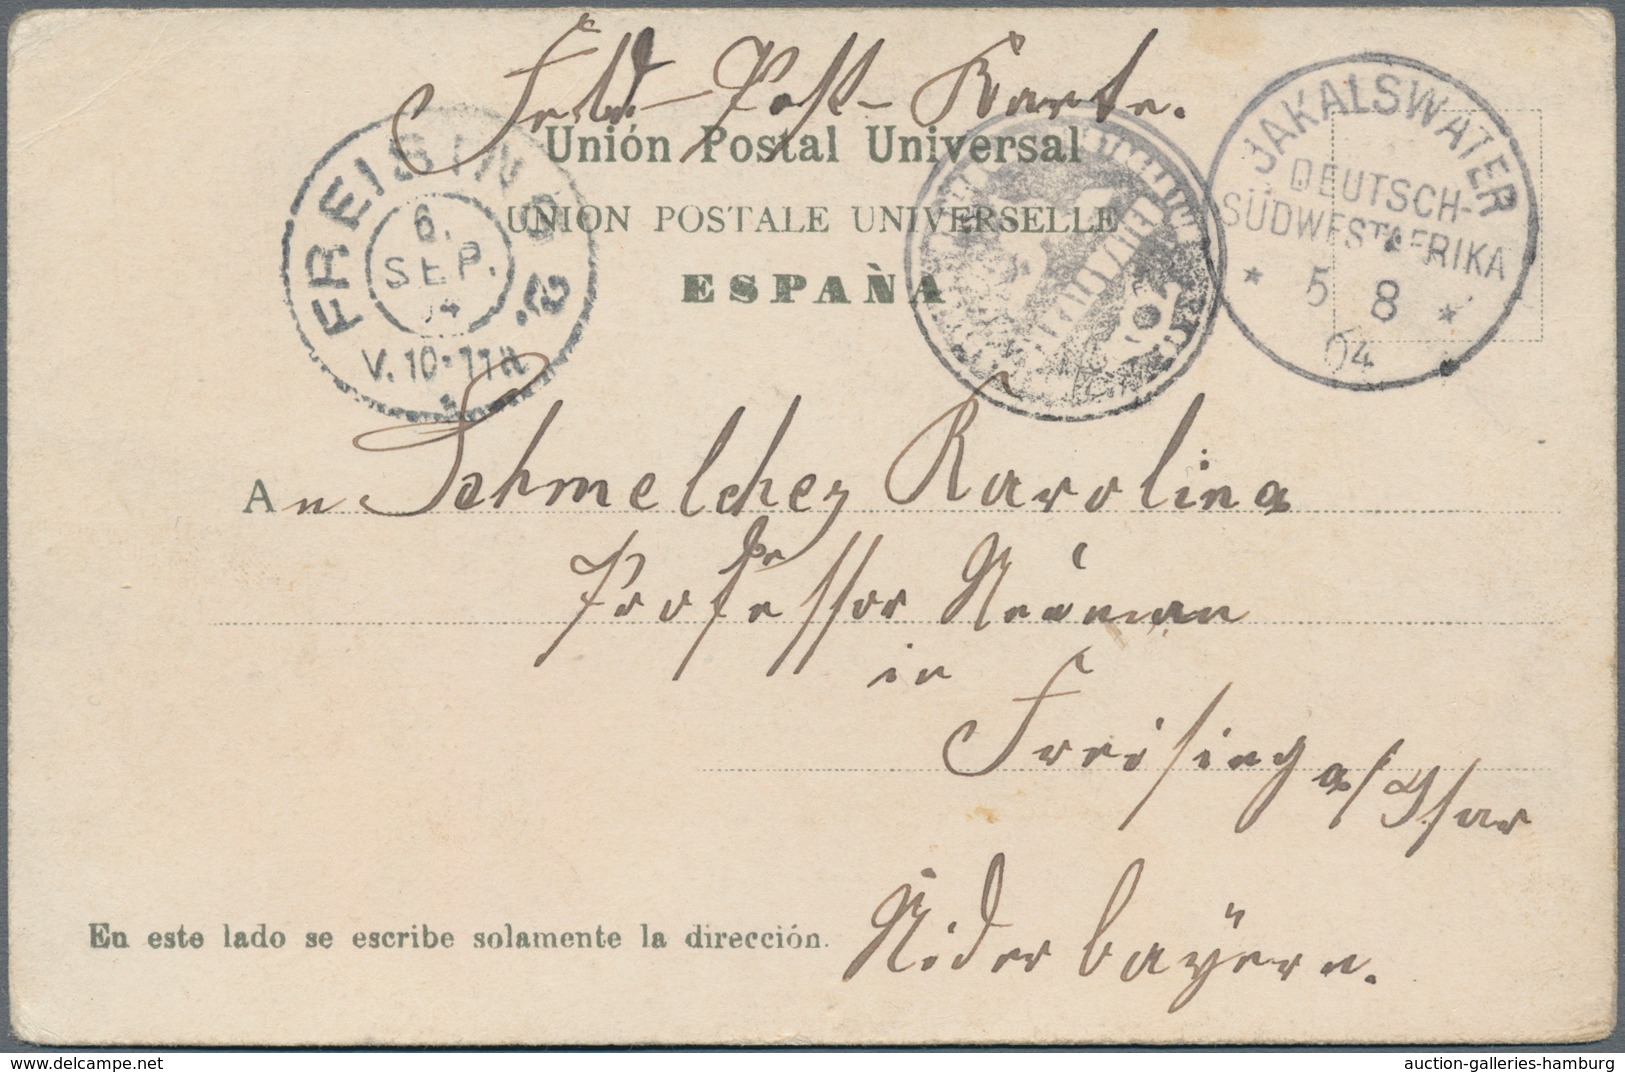 Feld-Post-Karte.
Unión Postal Universal
UNION POSTALE UNIVERSELLE
ESPAÑA
FREISING 2.
6.
SEP.
04
V. 10-11
JAKALSWATER
DEUTSCH-
SÜDWESTAFRIKA
* 5 8 *
04
An Schmelcher Karolina
Professor
in
Freising a/Isar
Niderbayern.
En este lado se escribe solamente la dirección.
delcampe.net
auction-galleries-hamburg